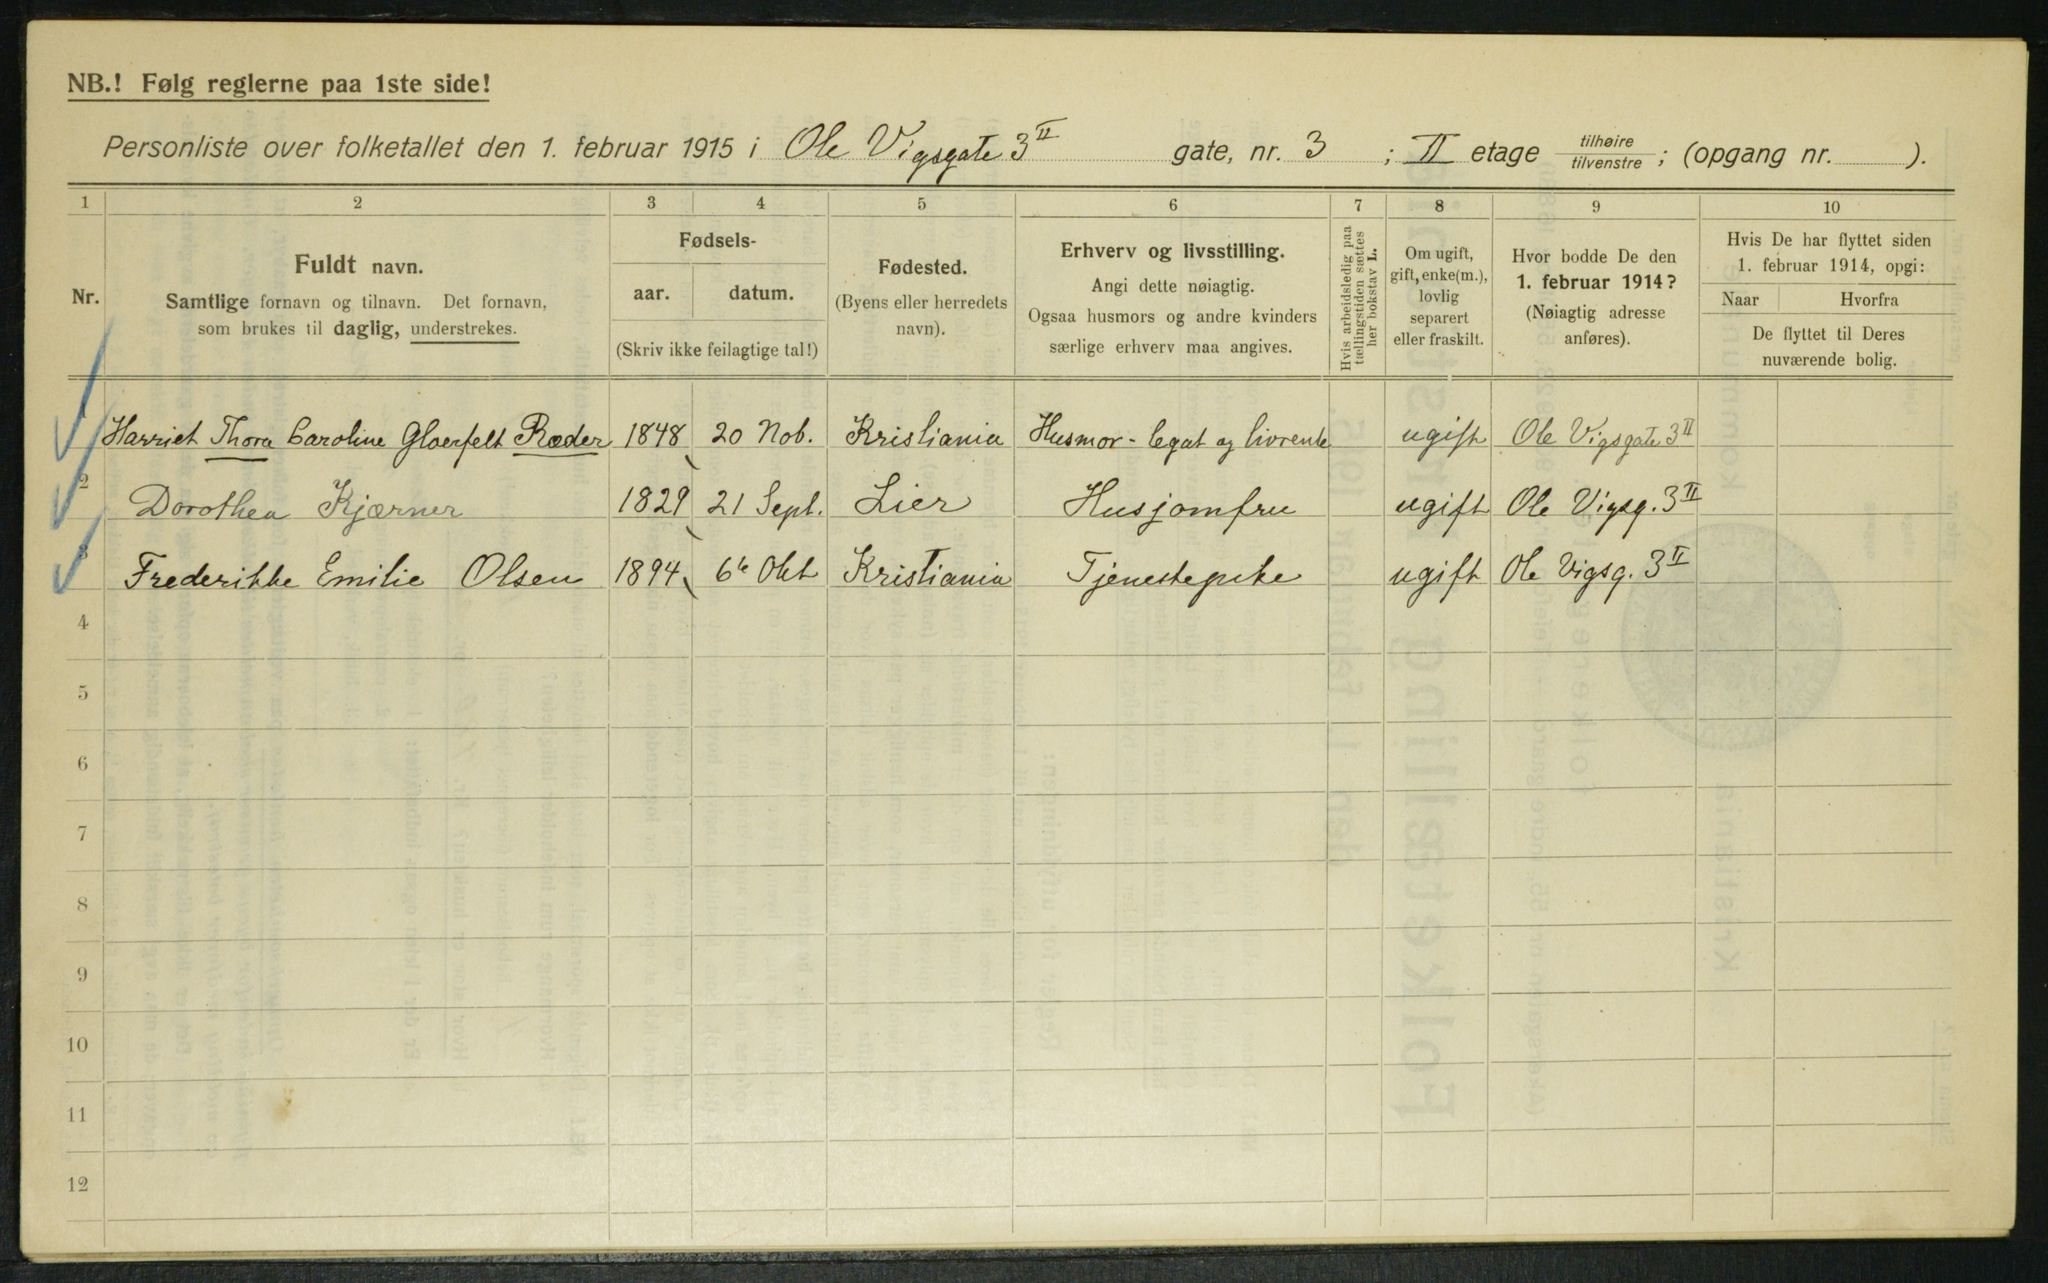 NB.! Følg reglerne paa 1ste side!
Personliste over folketallet den 1. februar 1915 i Ole Vigsgate 3 II gate, nr. 3 ; II etage tilhøire tilvenstre ; (opgang nr. ).
1 2 3 4 5 6 7 8 9 10
Nr.
Fuldt navn.
Samtlige fornavn og tilnavn. Det fornavn,
som brukes til daglig, understrekes.
Fødsels-
aar. datum.
(Skriv ikke feilagtige tal!)
Fødested.
(Byens eller herredets
navn).
Erhverv og livsstilling.
Angi dette nøiagtig.
Ogsaa husmors og andre kvinders
særlige erhverv maa angives.
Hvis arbeidsledig paa
tællingstiden sættes
her bokstav L.
Om ugift,
gift, enke(m.),
lovlig
separert
eller fraskilt.
Hvor bodde De den
1. februar 1914?
(Nøiagtig adresse
anføres).
Hvis De har flyttet siden
1. februar 1914, opgi:
Naar Hvorfra
De flyttet til Deres
nuværende bolig.
1 Harriet Thora Caroline Gloerfelt Roeder 1848 20 Nob. Kristiania Husmor - legat og livrente ugift Ole Vigsgate 3 II
2 Dorothea Kjærner 1829 21 Sept. Lier Husjomfru ugift Ole Vigsg. 3 II
3 Frederikke Emilie Olsen 1894 6te Okt Kristiania Tjenestepike ugift Ole Vigsg. 3 II
4
5
6
7
8
9
10
11
12